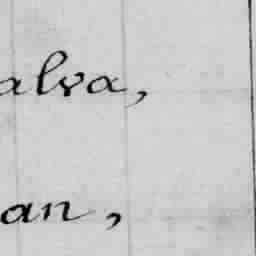 alva,
an,